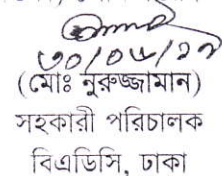 ৩০/০৬/১৭
(মোঃ নুরুজ্জামান)
সহকারী পরিচালক
বিএডিসি, ঢাকা